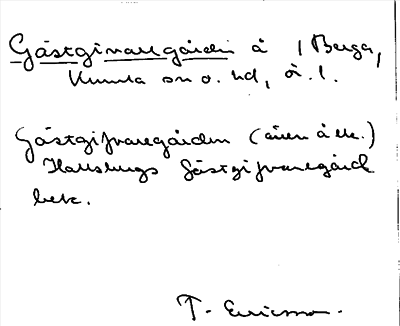 Gästgivaregården å 1 Berga,
Kumla sn o. hd, Ör. l.
Gästgifvaregården (även å ek.)
Hallsbergs Gästgifvaregård
bek.
T. Ericsson.